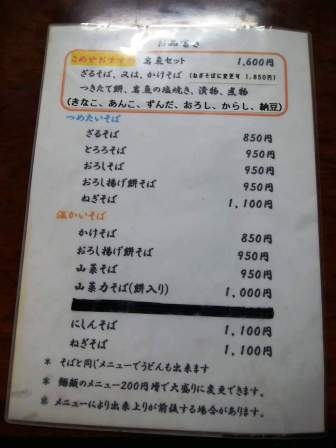 お品書き
こめやおすすめ 岩魚セット 1,600円
ざるそば、又は、かけそば (ねぎそばに変更可 1,850円)
つきたて餅、岩魚の塩焼き、漬物、煮物
(きなこ、あんこ、ずんだ、おろし、からし、納豆)
つめたいそば
ざるそば 850円
とろろそば 950円
おろしそば 950円
おろし揚げ餅そば 950円
ねぎそば 1,100円
温かいそば
かけそば 850円
おろし揚げ餅そば 950円
山菜そば 950円
山菜力そば(餅入り) 1,000円
にしんそば 1,100円
ねぎそば 1,100円
* そばと同じメニューでうどんも出来ます
* 麺類のメニュー200円増で大盛りに変更できます。
* メニューにより出来上りが前後する場合があります。